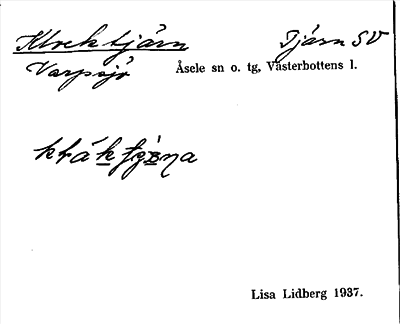 Klrektjärn Tjärn SV
Varpsjö Åsele sn o. tg, Västerbottens l.
Lisa Lidberg 1937.